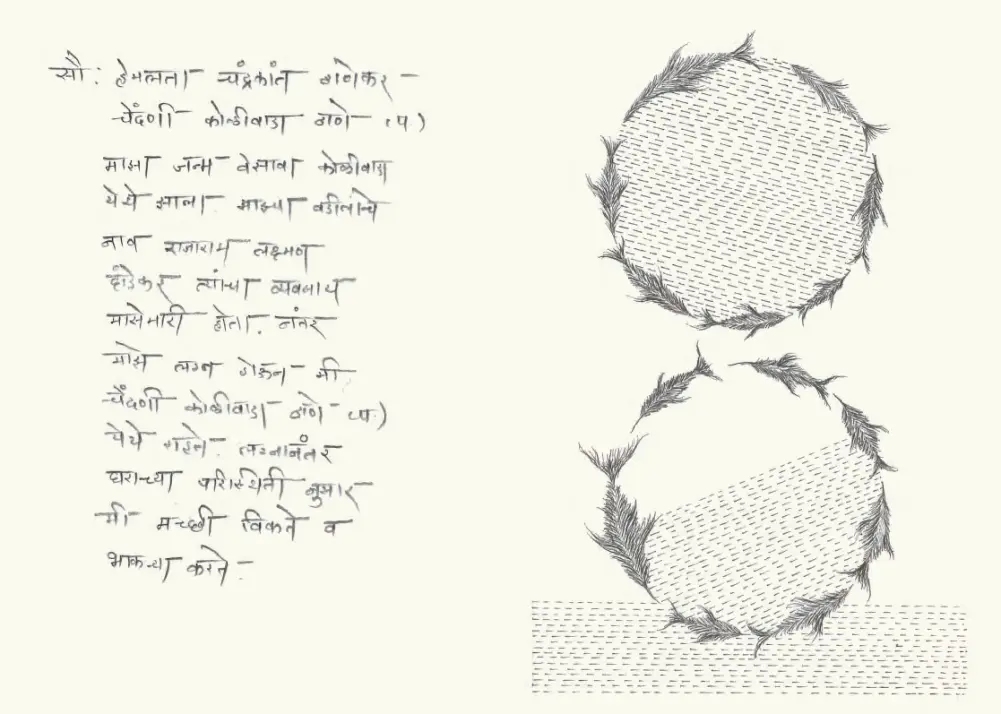 सौ. हेमलता चंद्रकांत ठाणेकर -
चेंदणी कोळीवाडा ठाणे (प.)
माझा जन्म वेसावा कोळीवाडा
येथे झाला. माझ्या वडीलांचे
नाव राजाराम लक्ष्मण
त्यांचा व्यवसाय
मासेमारी होता. नंतर
माझे लग्न होऊन मी
चेंदणी कोळीवाडा ठाणे (प.)
येथे राहते. लग्नानंतर
घराच्या परिस्थिती नुसार
मी मच्छी विकते व
भाकऱ्या करते -